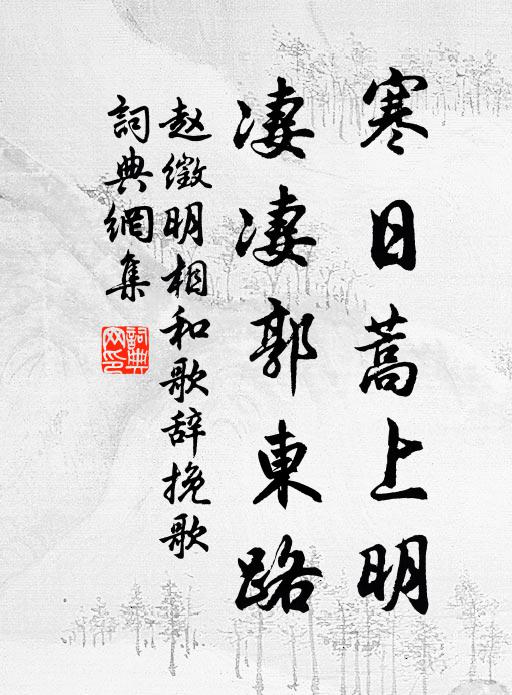 寒日蒿上明
凄凄郭東路
赵徵明相和歌辞挽歌
詞典網集
詞典
网印